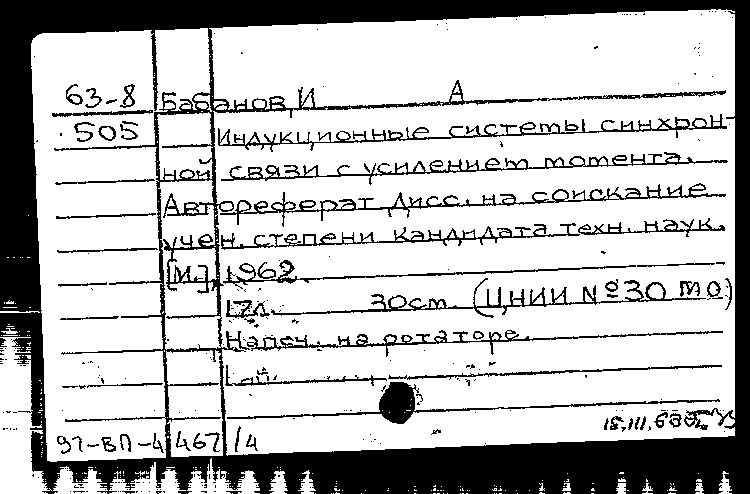 63-8 Бабанов, И А
505 Индукционные системы синхрон-
ной связи с усилением момента.
Автореферат дисс. на соискание
учен. степени кандидата техн. наук.
[М.], 1962.
17л. 30см. (ЦНИИ №30 МО)
Напеч. на ротаторе.
15.III.63г.
97-ВП-4/467/4